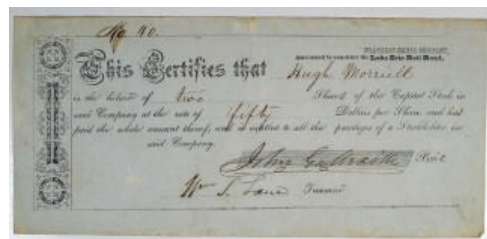 No 40.
FRANKLIN CANAL COMPANY,
Authorized to construct the Lake Erie Rail Road.
This Certifies that Hugh Morrill
is the holder of two Shares of the Capital Stock in
said Company at the rate of fifty Dollars per Share and has
paid the whole amount thereof, and is entitled to all the privileges of a Stockholder in
said Company.
John Galbraith Pres't
Wm S. Lane Treasurer